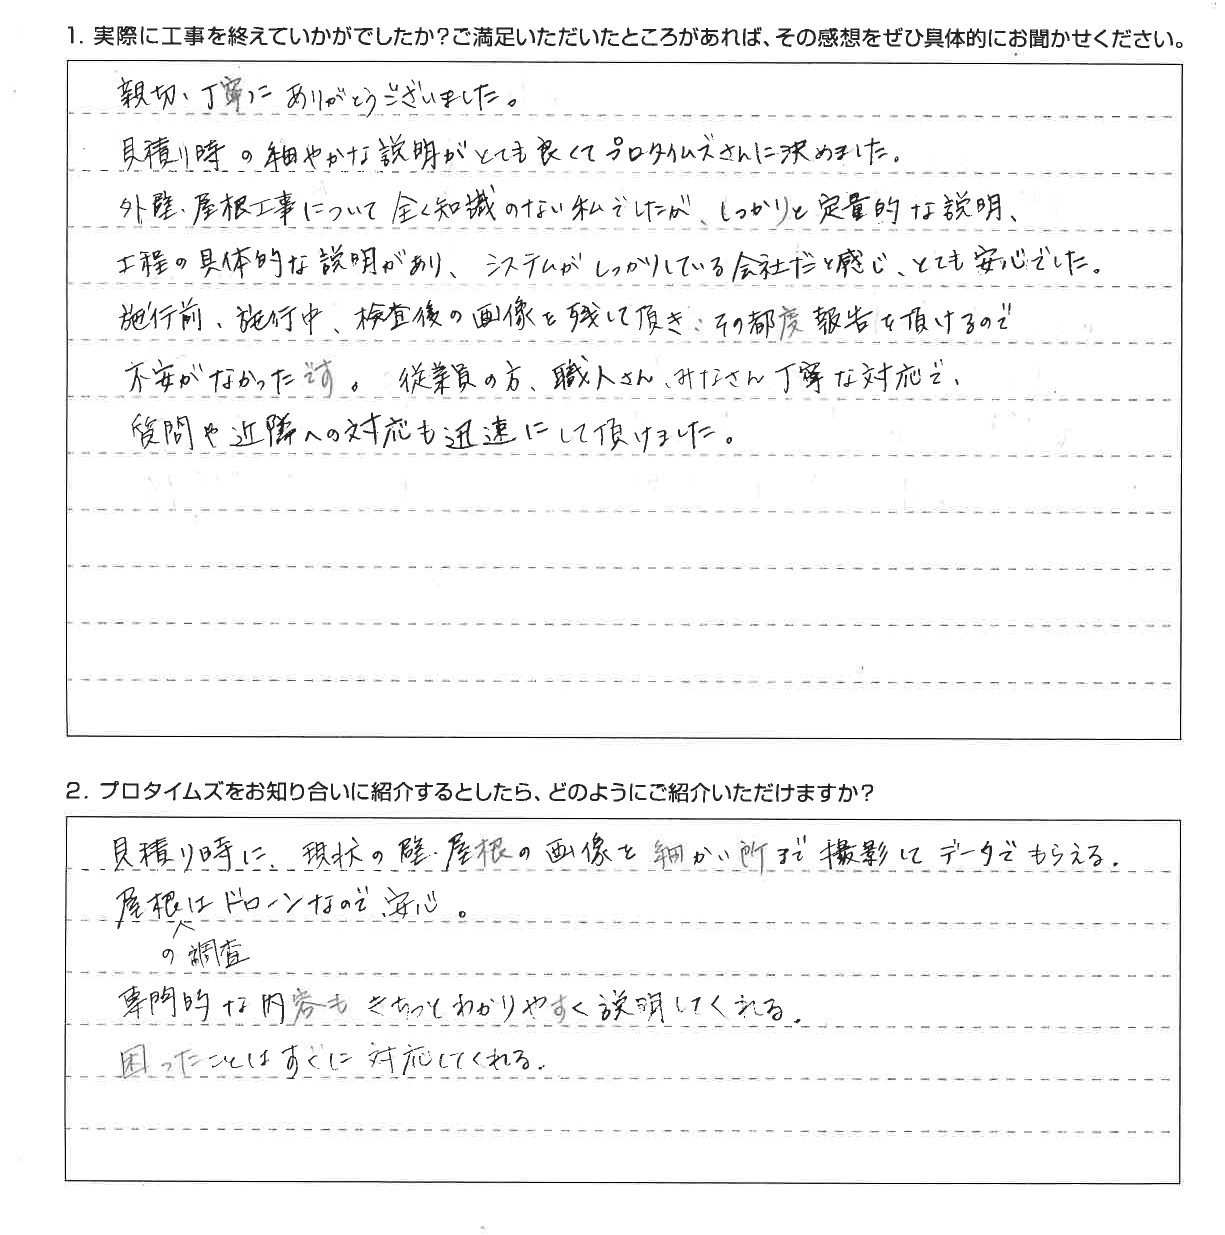 1. 実際に工事を終えていかがでしたか?ご満足いただいたところがあれば、その感想をぜひ具体的にお聞かせください。
親切、丁寧に ありがとうございました。
見積り時の細やかな説明がとても良くてプロタイムズさんに決めました。
外壁、屋根工事について全く知識のない私でしたが、しっかりと定量的な説明、
工程の具体的な説明があり、システムがしっかりしている会社だと感じ、とても安心でした。
施行前、施行中、検査後の画像を残して頂き、その都度報告を頂けるので
不安がなかったです。従業員の方、職人さん、みなさん丁寧な対応で、
質問や近隣への対応も迅速にして頂けました。
2. プロタイムズをお知り合いに紹介するとしたら、どのようにご紹介いただけますか?
見積り時に、現状の壁、屋根の画像を細かい所まで撮影してデータでもらえる。
屋根はドローンなので、安心。
の調査
専門的な内容もきちっとわかりやすく説明してくれる。
困ったことはすぐに対応してくれる。